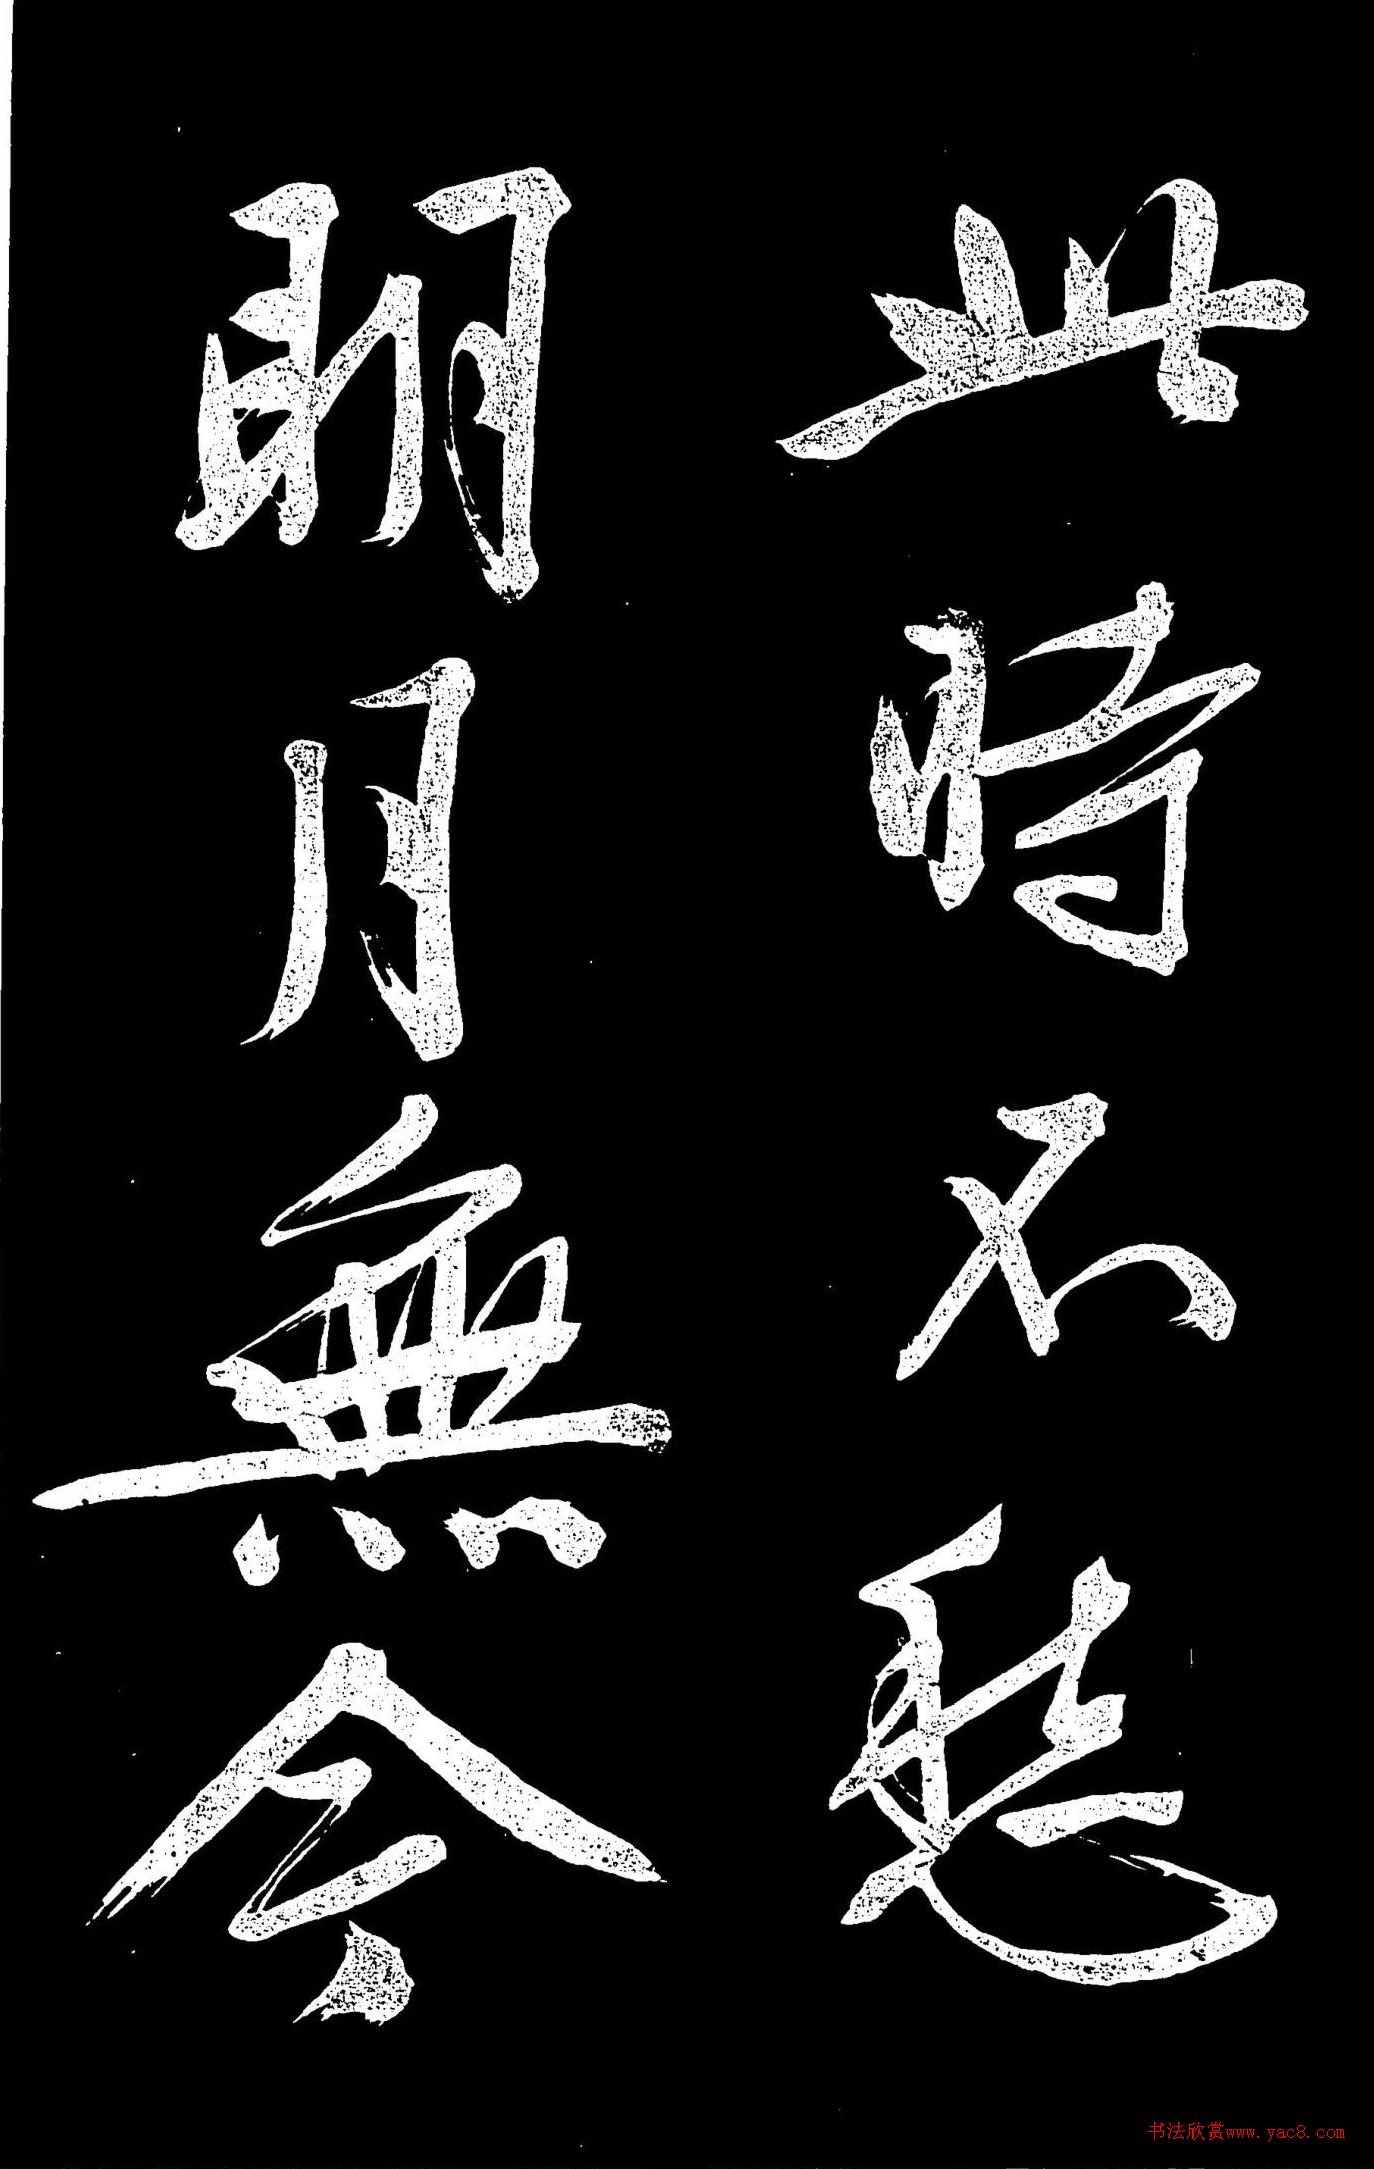 此時不
明月無今
书法欣赏www.yac8.com